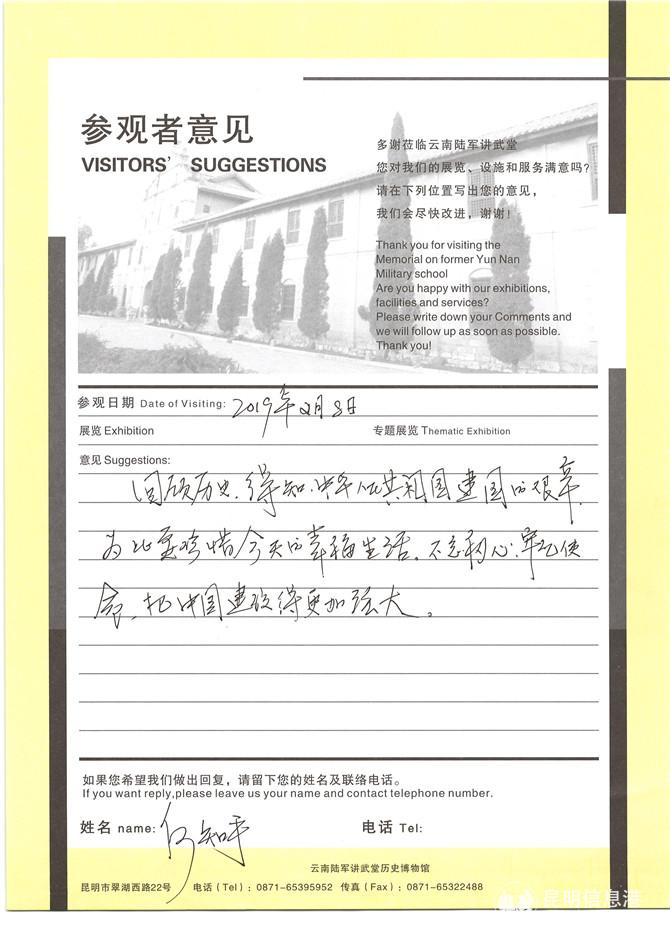 参观者意见
VISITORS' SUGGESTIONS
多谢莅临云南陆军讲武堂
您对我们的展览、设施和服务满意吗？
请在下列位置写出您的意见，
我们会尽快改进，谢谢！
Thank you for visiting the
Memorial on former Yun Nan
Military school
Are you happy with our exhibitions,
facilities and services?
Please write down your Comments and
we will follow up as soon as possible.
Thank you!
参观日期 Date of Visiting: 2019年2月8日
展览 Exhibition 专题展览 Thematic Exhibition
意见 Suggestions:
回顾历史、得知、中华人民共和国建国的艰辛,
为此要珍惜今天的幸福生活。不忘初心、牢记使
命、把中国建设得更加强大。
如果您希望我们做出回复，请留下您的姓名及联络电话。
If you want reply,please leave us your name and contact telephone number.
姓名 name: 知乎 电话 Tel:
云南陆军讲武堂历史博物馆
昆明市翠湖西路22号 电话（Tel）：0871-65395952 传真（Fax）：0871-65322488
昆明信息港